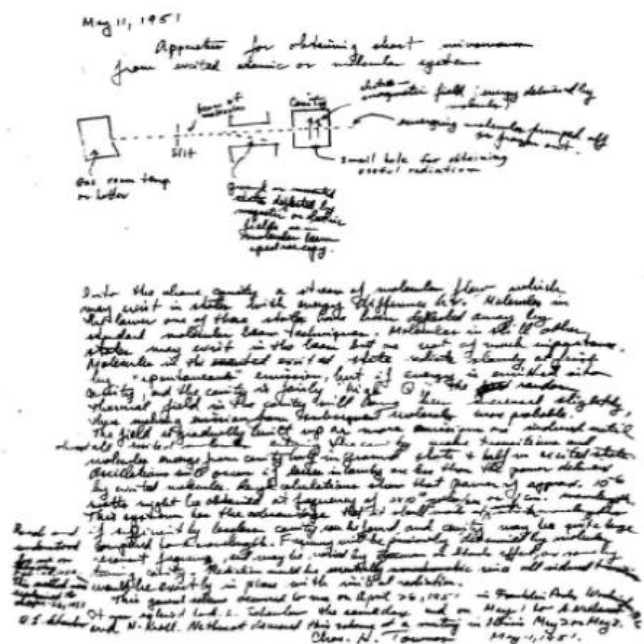 May 11, 1951
Apparatus for obtaining short microwaves
from excited atomic or molecular systems
beam of
molecules
Cavity
magnetic field; energy delivered by
molecules
emerging molecules pumped off
or frozen out.
Slit
Small hole for obtaining
useful radiation
Gas room temp
or hotter
Ground or excited
state deflected by
magnetic or electric
fields as in
molecular beam
spectroscopy.
Into the above cavity a stream of molecules flow which
may exist in states with energy difference hν. Molecules in
the lower one of these states have been deflected away by
standard molecular beam techniques. Molecules in still other
states may exist in the beam but are not of much importance.
Molecules in the excited state radiate slowly at first
by "spontaneous" emission, but if energy is emitted into
cavity, and the cavity is fairly high Q the random
thermal field in the cavity will being then increased slightly,
thus makes emission from subsequent molecules more probable.
The field gradually builds up as more emissions are induced until
almost all excited molecules
molecules emerge from cavity half in ground state & half in excited state
Oscillations will occur if losses in cavity are less than the power delivered
by excited molecules. Rough calculations show that power of approx. 10⁻⁶
watts might be obtained at frequency of
This system has the advantage that
if sufficiently lossless cavity can be found and cavity may be quite large
compared to wavelength. Frequency will be primarily determined by molecular
resonant frequency, but may be varied by Zeeman or Stark effect or some by
tuning cavity. Radiation could be essentially monochromatic since all induced transitions
would be exactly in phase with initial radiation.
This general scheme occurred to me on April 26, 1951 in Franklin Park, Washington
It was explained to A. L. Schawlow the same day and on May 1 to A. Nethercot
and N. Kroll. Nethercot discussed this scheme at a meeting in Illinois May 2 or May 3.
Chas. H. Townes May 11, 1951
Read and
understood
A. L. Schawlow